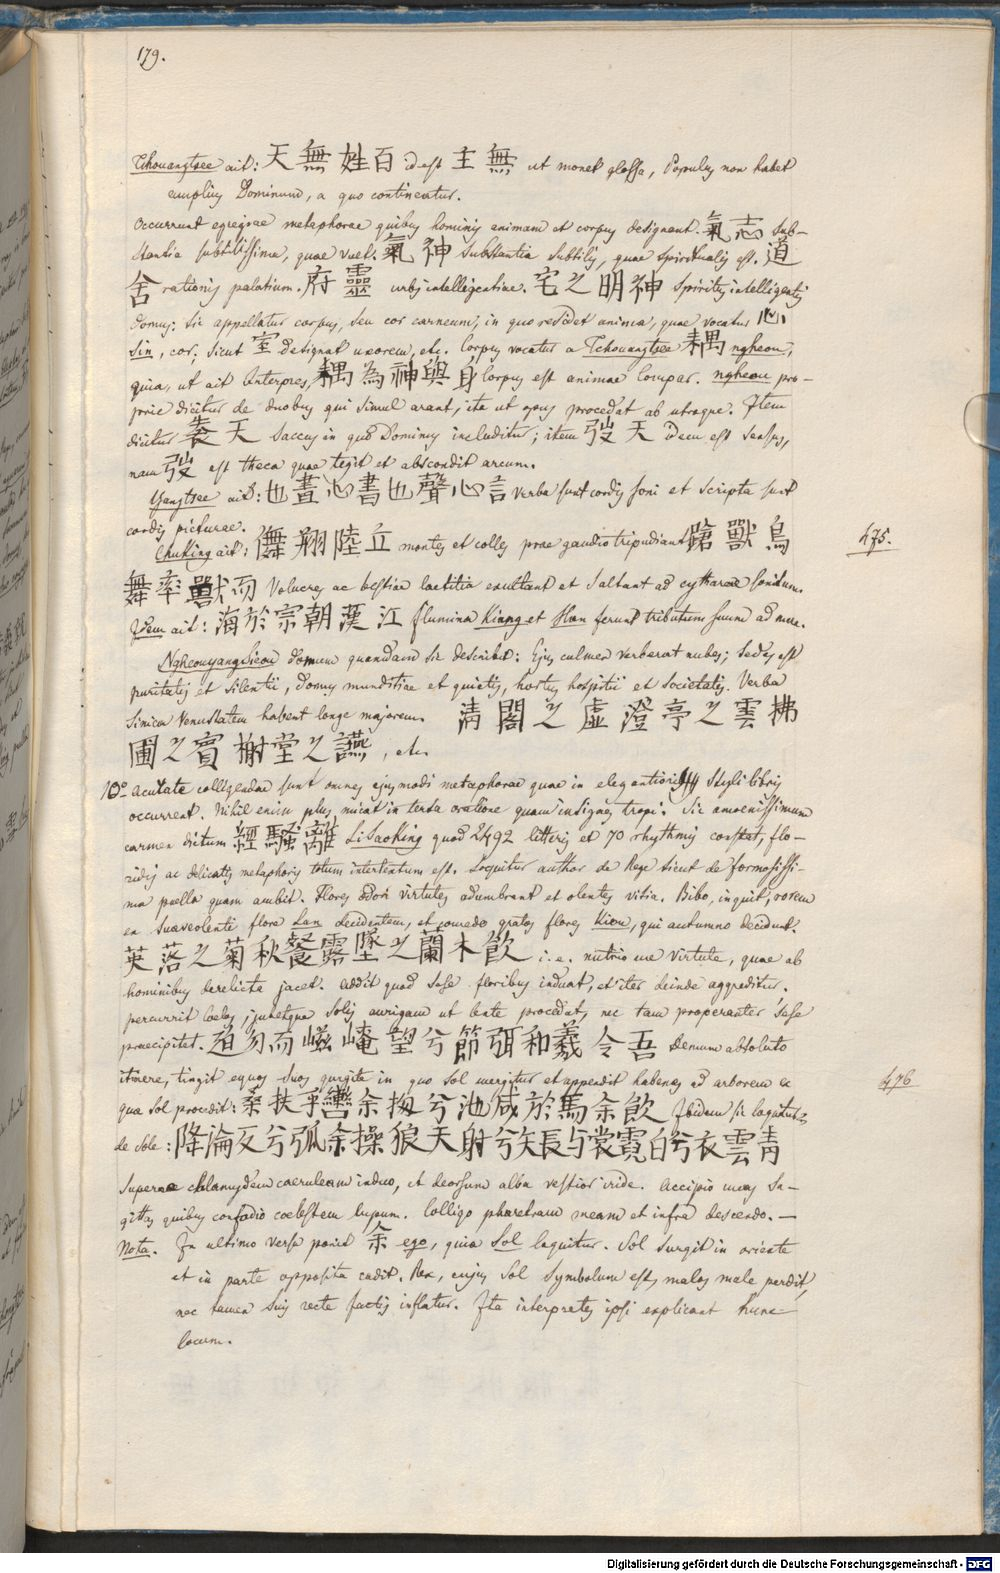 179.
Tchouangtsee ait: 天無姓百 id est 主無 ut monet glossa, Populus non habet
amplius Dominum, a quo contineatur.
Occurrunt egregiae metaphorae quibus hominis animam et corpus designant. 氣志 Sub-
stantia subtilissima, quae vult. 氣神 Substantia subtilis, quae spiritualis est. 道
舍 rationis palatium. 府靈 urbs intelligentiae. 宅之明神 Spiritus intelligentis
domus: sic appellatur corpus, seu cor carneum, in quo residet anima, quae vocatur 心
Sin, cor. Sicut 室 designat uxorem, etc. Corpus vocatur a Tchouangtsee 耦 ngheou,
quia, ut ait Interpres, 耦為神與身 Corpus est animae Compar. ngheou pro-
prie dicitur de duobus qui simul arant, ita ut opus procedat ab utroque. Item
dicitur 袠天 Saccus in quo Dominus includitur; item 弢天 idem est sensus,
nam 弢 est theca quae tegit et abscondit arcum.
Yangtsee ait: 也畫心書也聲心言 Verba sunt cordis soni et scripta sunt
cordis picturae.
Chuking ait: 儛翔陸丘 montes et colles prae gaudio tripudiant 蹌獸鳥
舞率獸而 Volucres ac bestiae laetitia exultant et saltant ad cytharae sonitum.
475.
Idem ait: 海於宗朝漢江 flumina Kiang et Han ferunt tributum suum ad mare.
Ngheouyangsieou domum quandam sic describit: Ejus culmen verberat nubes; Sedes est
puritatis et silentii, domus munditiae et quietis, hortus hospitii et Societatis. Verba
Sinica venustatem habent longe majorem. 清閣之虛澄亭之雲拂
圃之賓榭堂之讌, etc.
10.° Acutate colligendae sunt omnes ejusmodi metaphorae quae in elegantioris styli libris
occurrent. Nihil enim plus micat in tersa oratione quam insignes tropi. Sic amoenissimum
carmen dictum 經騷離 LiSaoKing quod 2492 litteris et 70 rhythmis constat, flo-
ridis ac delicatis metaphoris totum intertentum est. Loquitur author de Rege sicut de formosissi-
ma puella quam ambit. Flores odori virtutes adumbrant et olentes vitia. Bibo, inquit, rorem
ex suaveolenti flore Lan decidentem, et comedo gratos flores Kiou, qui autumno decidunt.
英落之菊秋餐露墜之蘭木飲 i.e. nutrio me virtute, quae ab
hominibus derelicta jacet. addit quod sese floribus induat, et iter deinde aggreditur.
percurrit coelos, jubetque solis aurigam ut lente procedat, nec tam properanter sese
praecipitet. 迫勿而嵫崦望兮節弭和羲令吾 Demum absoluto
itinere, tingit equos suos gurgite in quo sol mergitur et appendit habenas ad arborem ex
476
qua sol procedit: 桑扶乎轡余抝兮池咸於馬余飲 Ibidem sic loquitur
de sole: 降淪反兮弧余操狼天射兮矢長与裳霓白兮衣雲青
Superne chlamydem caeruleam induo, et deorsum alba vestior iride. Accipio meas Sa-
gittas quibus confodio coelestem lupum. Colligo pharetram meam et infra descendo. —
Nota. In ultimo versu ponit 余 ego, quia Sol loquitur. Sol surgit in oriente
et in parte opposita cadit. Rex, cujus Sol Symbolum est, malos male perdit,
nec tamen suis recte factis inflatur. Ita interpretes ipsi explicant hunc
locum.
Digitalisierung gefördert durch die Deutsche Forschungsgemeinschaft - DFG